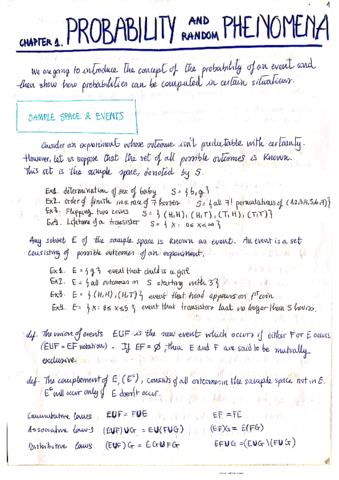 1
CHAPTER 1. PROBABILITY AND RANDOM PHENOMENA
We are going to introduce the concept of the probability of an event and
then show how probabilities can be computed in certain situations.
SAMPLE SPACE & EVENTS
Consider an experiment whose outcome isn't predictable with certainty.
However, let us suppose that the set of all possible outcomes is known.
This set is the sample space, denoted by S.
Ex1. determination of sex of baby S = {b, g}
Ex2. order of finish in a race of 7 horses S = {all 7! permutations of (1,2,3,4,5,6,7)}
Ex3. Flipping two coins S = {(H,H), (H,T), (T,H), (T,T)}
Ex4. Lifetime of a transistor S = {x: 0≤x≤∞}
Any subset E of the sample space is known as event. An event is a set
consisting of possible outcomes of an experiment.
Ex1. E = {g} event that child is a girl
Ex2. E = {all outcomes in S starting with 3}
Ex3. E = {(H,H), (H,T)} event that head appears on 1st coin
E = {x: 0≤x≤5} event that transistor last no longer than 5 hours.
def. The union of events EUF is the new event which occurs if either F or E occurs
If EF = Ø, then E and F are said to be mutually
exclusive.
def. The complement of E, (Eᶜ), consists of all outcomes in the sample space not in E.
Eᶜ will occur only if E doesn't occur.
Commutative laws EUF = FUE EF = FE
Associative laws (EUF)UG = EU(FUG) (EF)G = E(FG)
Distributive laws (EUF)G = EGUFG EFUG = (EUG)(FUG)